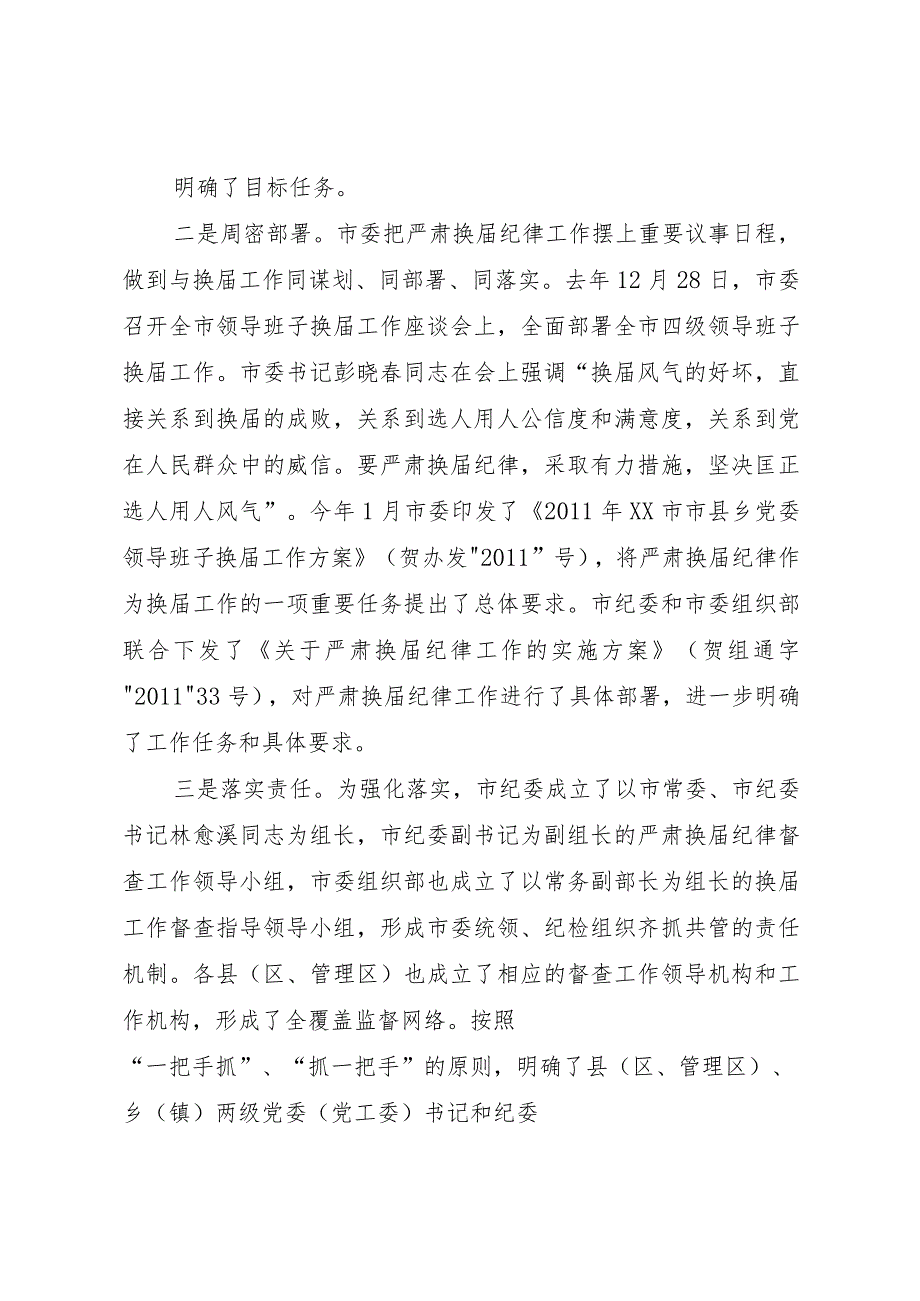 明确了目标任务。
二是周密部署。市委把严肃换届纪律工作摆上重要议事日程，
做到与换届工作同谋划、同部署、同落实。去年 12 月 28 日，市委
召开全市领导班子换届工作座谈会上，全面部署全市四级领导班子
换届工作。市委书记彭晓春同志在会上强调“换届风气的好坏，直
接关系到换届的成败，关系到选人用人公信度和满意度，关系到党
在人民群众中的威信。要严肃换届纪律，采取有力措施，坚决匡正
选人用人风气”。今年 1 月市委印发了《2011 年 XX 市市县乡党委
领导班子换届工作方案》（贺办发"2011”号），将严肃换届纪律作
为换届工作的一项重要任务提出了总体要求。市纪委和市委组织部
联合下发了《关于严肃换届纪律工作的实施方案》（贺组通字
"2011"33 号），对严肃换届纪律工作进行了具体部署，进一步明确
了工作任务和具体要求。
三是落实责任。为强化落实，市纪委成立了以市常委、市纪委
书记林愈溪同志为组长，市纪委副书记为副组长的严肃换届纪律督
查工作领导小组，市委组织部也成立了以常务副部长为组长的换届
工作督查指导领导小组，形成市委统领、纪检组织齐抓共管的责任
机制。各县（区、管理区）也成立了相应的督查工作领导机构和工
作机构，形成了全覆盖监督网络。按照
“一把手抓”、“抓一把手”的原则，明确了县（区、管理区）、
乡（镇）两级党委（党工委）书记和纪委